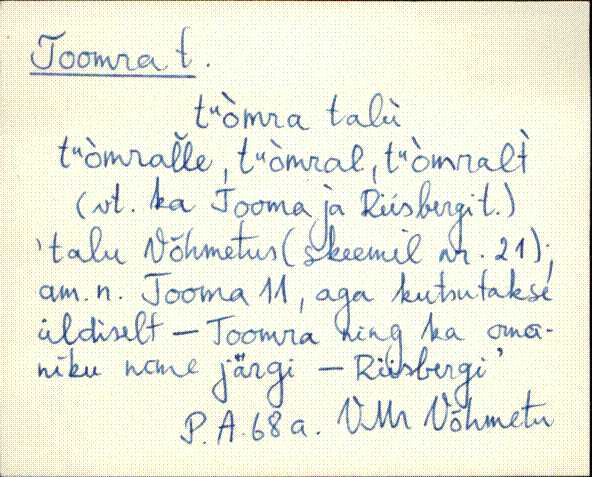 Toomra t.
tᵘòmra talù
tᵘòmral̆l̆e, tᵘòmral, tᵘòmral̀t
(vt. ka Tooma ja Riisbergi t.)
'talu Võhmetus (skeemil nr. 21);
am. n. Tooma 11, aga kutsutakse
üldiselt – Toomra ning ka oma-
niku nime järgi – Riisbergi'
P.A. 68 a. VMr Võhmetu